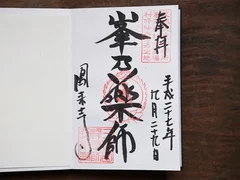 奉拝
平成二十七年
九月二十九日
峯乃薬師
鳳来寺